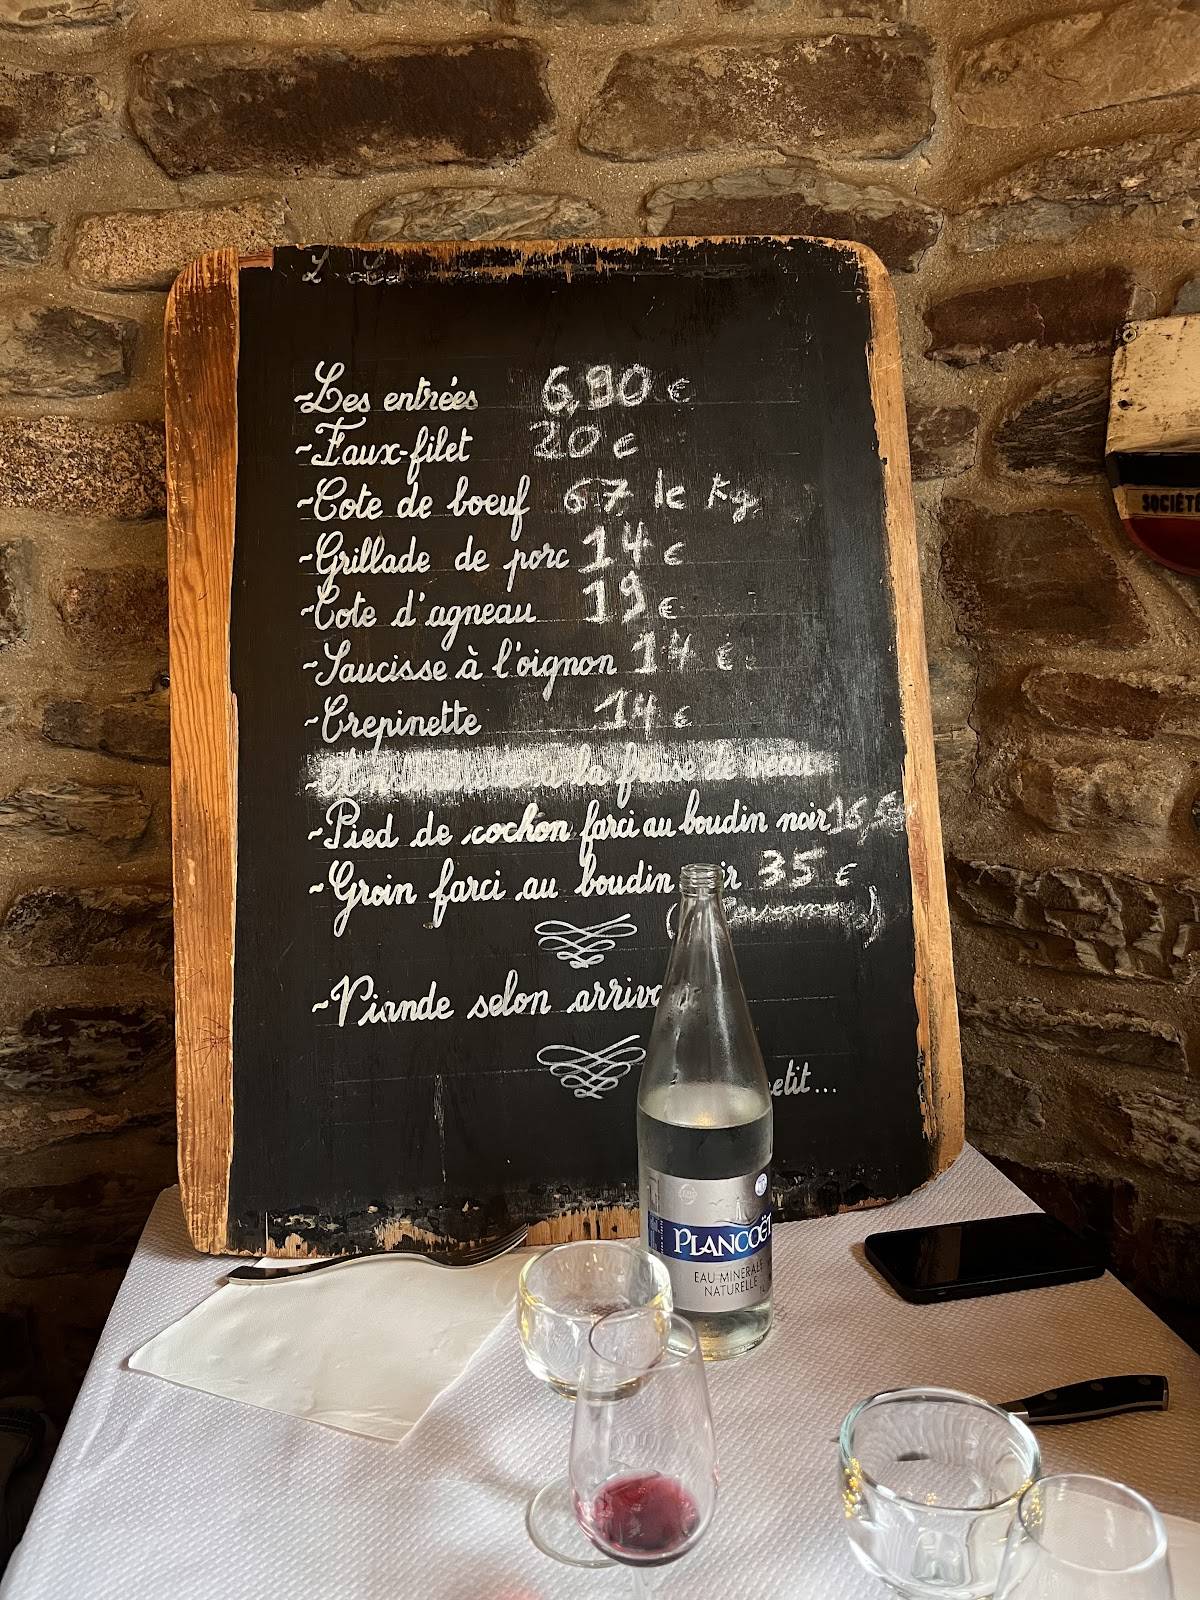 ~Les entrées 6,90 €
~Faux-filet 20 €
~Cote de boeuf 67 le Kg
~Grillade de porc 14 €
~Cote d'agneau 19 €
~Saucisse à l'oignon 14 €
~Crepinette 14 €
à la fraise de veau
~Pied de cochon farci au boudin noir
~Groin farci au boudin 35 €
~Viande selon arrivage
SOCIÉTÉ
PLANCOËT
EAU MINERALE
NATURELLE